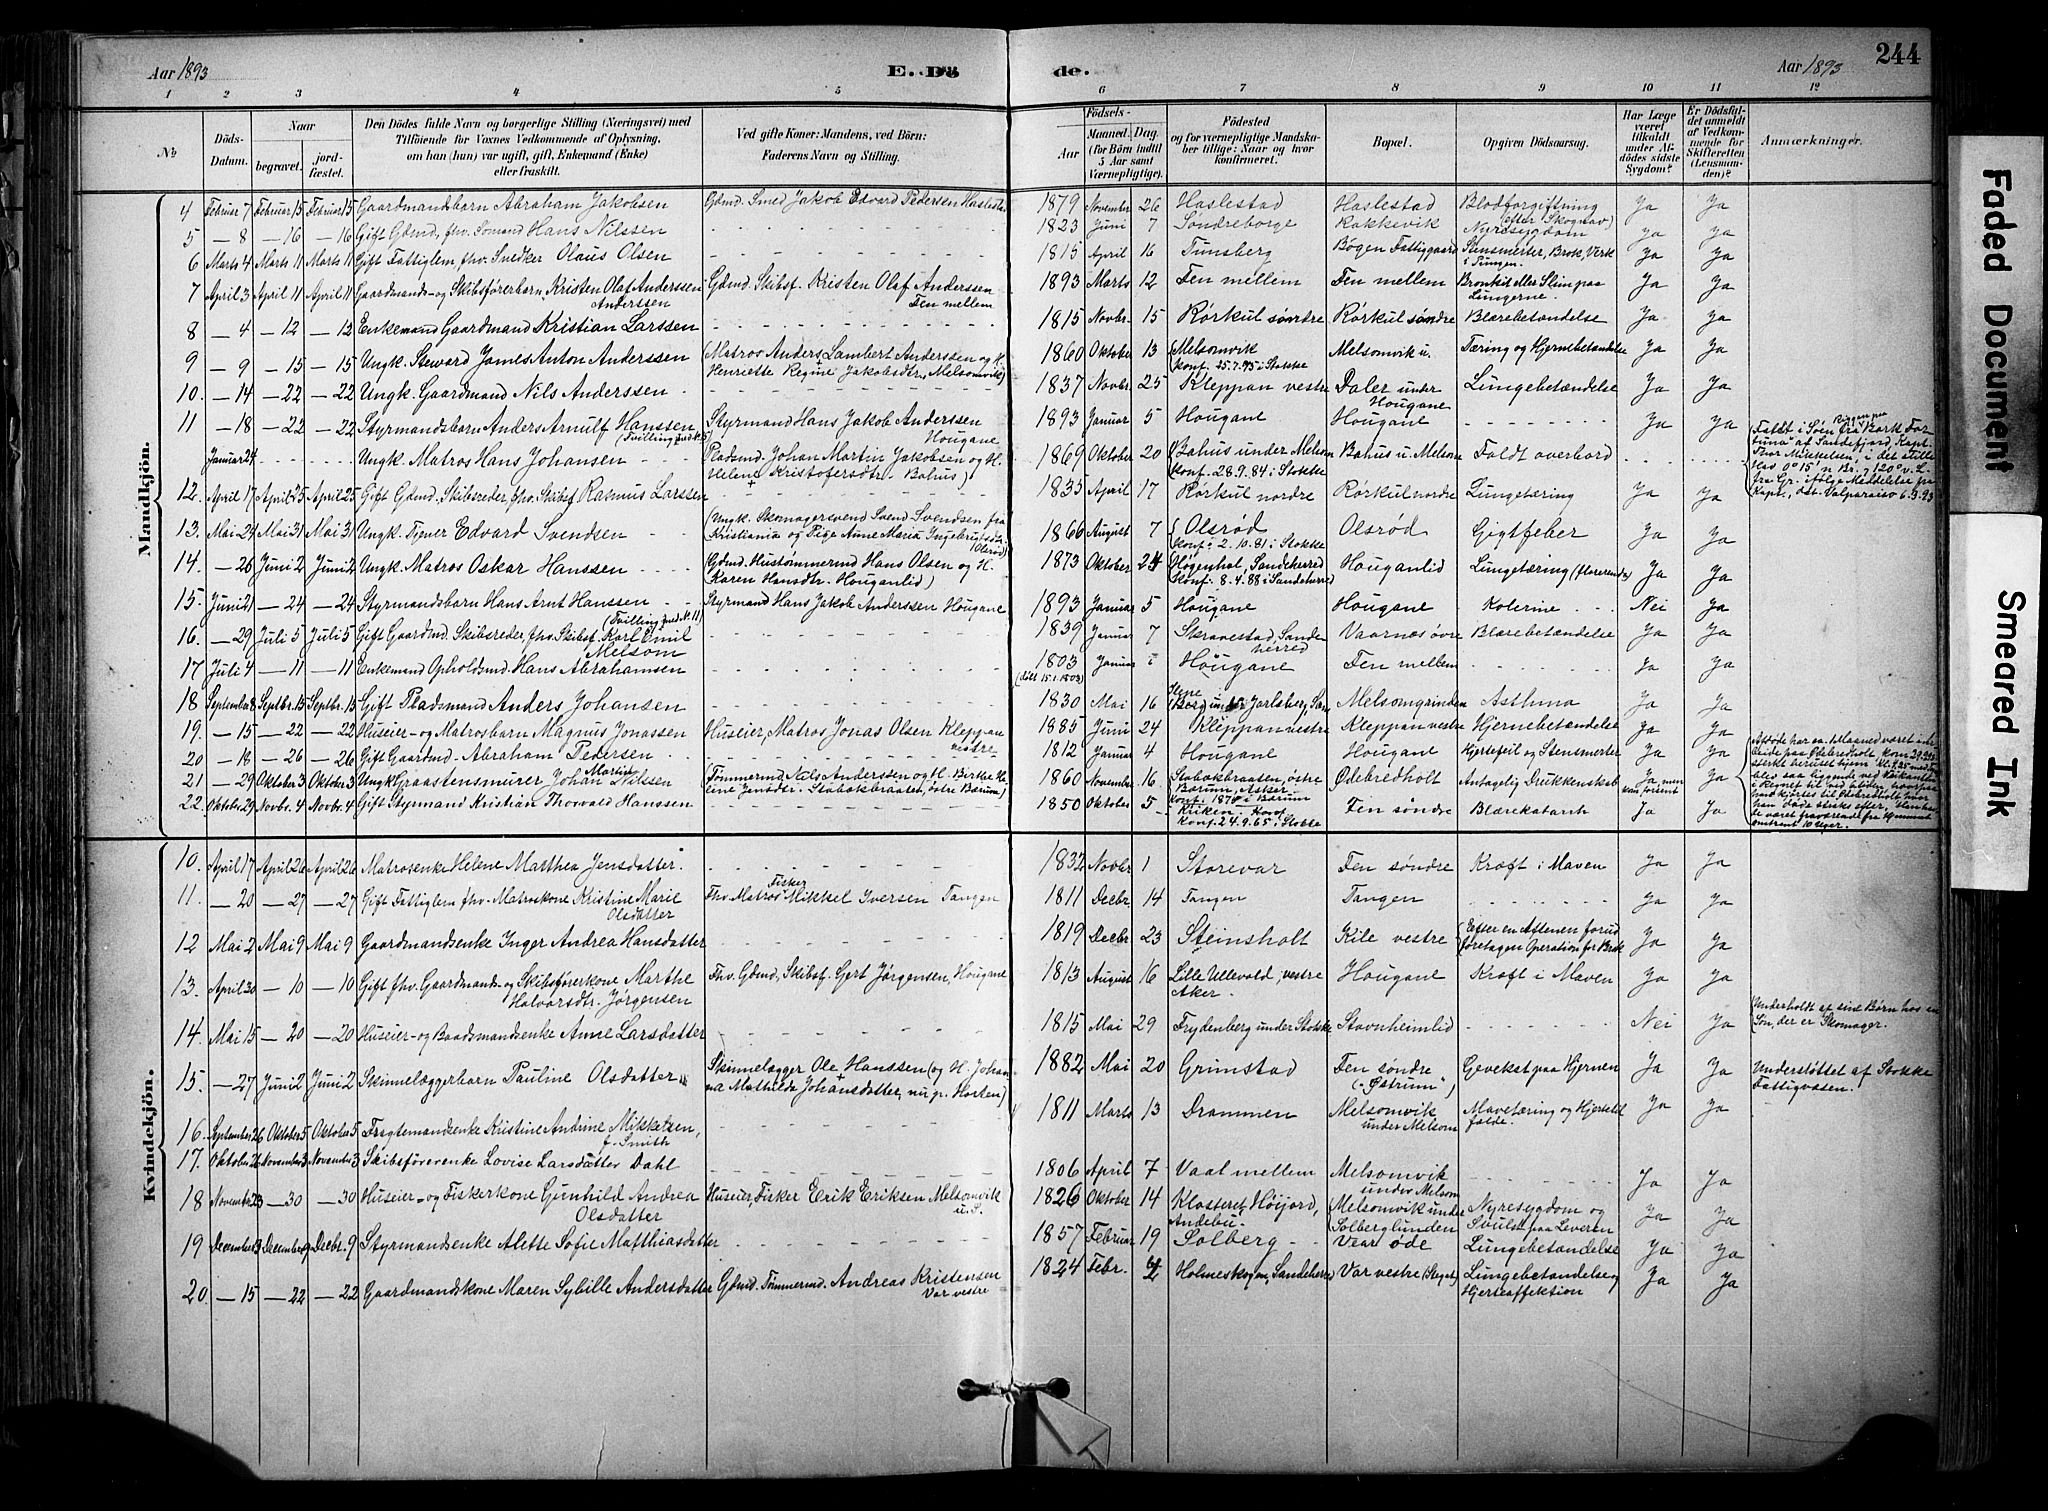 Aar 1893
E. Dö
de.
Aar 1893
244
1 2 3 4 5 6 7 8 9 10 11 12
No
Döds-Datum.
Naar
begravet.
jord-fæstet.
Den Dödes fulde Navn og borgerlige Stilling (Næringsvei) med
Tilföiende for Voxnes Vedkommende af Oplysning,
om han (hun) var ugift, gift, Enkemand (Enke)
eller fraskilt.
Ved gifte Koner: Mandens, ved Börn:
Faderens Navn og Stilling.
Födsels-
Aar
Maaned. (for Börn indtil 5 Aar samt Værnepligtige).
Dag.
Födested
og for værnepligtige Mandska-
ber tillige: Naar og hvor
konfirmeret.
Bopæl.
Opgiven Dödsaarsag.
Har Læge været tilkaldt under Af-dödes sidste Sygdom?
Er Dödsfal-det anmeldt af Vedkom-mende for Skifteretten (Lensman-den)?
Anmærkninger.
Mandkjön.
4 Februar 7 Februar 15 Februar 15 Gaardmandsbarn Abraham Jakobsen Gdmd. Smed Jakob Edvard Pedersen Haslestad 1879 November 26 Haslestad Haslestad Blodforgiftning (efter Skognav) Ja Ja
5 — 8 — 16 — 16 Gift Gdmd., fhv. Sømand Hans Nilssen 1823 Juni 7 Søndreborge Rakkevik Nyresygdom Ja Ja
6 Marts 4 Marts 11 Marts 11 Gift Fattiglem, fhv. Snedker Olaus Olsen 1815 April 16 Tunsberg Bøgen Fattiggaard Stensmerter, Brok, Verk i Pungen. Ja Ja
7 April 3 April 11 April 11 Gaardmands- og Skibsførerbarn Kristen Olaf Anderssen Gdmd. Skibsf. Kristen Olaf Anderssen Fen mellem 1893 Marts 12 Fen mellem Fen mellem Bronkit eller Slim paa Lungerne. Ja Ja
8 — 4 — 12 — 12 Enkemand Gaardmand Kristian Larssen 1815 Novbr. 15 Rørkul søndre Rørkul søndre Blærebetændelse Ja Ja
9 — 9 — 15 — 15 Ungk. Steward James Anton Anderssen (Matros Anders Lambert Anderssen og H. Henriette Regine Jakobsdtr., Melsomvik) 1860 Oktober 13 (Melsomvik konf. 25.7.75 i Stokke Melsomvik u. Tæring og Hjernebetændelse Ja Ja
10. — 14 — 22 — 22 Ungk. Gaardmand Nils Anderssen 1837 Novbr. 25 Kleppan vestre Daler under Hougane Lungebetændelse Ja Ja
11 — 18 — 22 — 22 Styrmandsbarn Anders Arnulf Hanssen (Tvilling med No 15) Styrmand Hans Jakob Anderssen Hougane 1893 Januar 5 Hougane Hougane Ja Ja
Januar 24 Ungk. Matros Hans Johansen Pladsmd. Johan Martin Jakobsen og H. Helene Kristofersdtr. Bahus) 1869 Oktober 20 (Bahus under Melsom konf. 28.9.84 i Stokke Bahus u. Melsom Faldt overbord (Faldt i Søen fra Riggen paa Bark "Fortuna" af Sandefjord, Kapt. Thor Mikkelsen, i det stille Hav 0° 15' n. Br. og 120° v. L. fra Gr. ifølge Meddelelse fra Kapt., dat. Valparaiso 6.3.93
12. April 17 April 25 April 25 Gift Gdmd. Skibsreder, fhv. Skibsf. Rasmus Larssen 1835 April 17 Rørkul nordre Rørkul nordre Lungetæring Ja Ja
13. Mai 24 Mai 31 Mai 31 Ungk. Tjener Edvard Svendsen (Ungk. Skomagersvend Svend Svendsen fra Kristiania og Pige Anne Maria Ingebrigtsdtr. Olsrød) 1866 August 7 (Olsrød konf. 2.10.81 i Stokke Olsrød Gigtfeber Ja Ja
14. — 26 Juni 2 Juni 2 Ungk. Matros Oskar Hanssen Gdmd. Hustømmermd Hans Olsen og H. Karen Hansdtr. Houganlid) 1873 Oktober 24 (Høgenhal, Sandeherred konf. 8.4.88 i Sandeherred Houganlid Lungetæring (florerende) Ja Ja
15. Juni 21 — 24 — 24 Styrmandsbarn Hans Arnt Hanssen (Tvilling med N. 11) Styrmand Hans Jakob Anderssen Hougane 1893 Januar 5 Hougane Hougane Kolerine Nei Ja
16. — 29 Juli 5 Juli 5 Gift Gaardmd. Skibsreder, fhv. Skibsf. Karl Emil Melsom 1839 Januar 7 Skravestad, Sandeherred Vaarnæs øvre Blærebetændelse Ja Ja
17 Juli 4 — 11 — 11 Enkemand Opholdsmd. Hans Abrahamsen 1803 (døbt 15.1.1803) Januar Hougane Fen mellem Ja Ja
18 September 8 Septbr. 15 Septbr. 15 Gift Pladsmand Anders Johansen 1830 Mai 16 Borg under Jarlsberg, Sem Melsomgrinden Asthma Ja Ja
19. — 15 — 22 — 22 Huseier- og Matrosbarn Magnus Jonassen Huseier, Matros Jonas Olsen Kleppan vestre 1885 Juni 24 Kleppan vestre Kleppan vestre Hjernebetændelse Ja Ja
20 — 18 — 26 — 26 Gift Gaardmd. Abraham Pedersen 1812 Januar 4 Hougane Hougane Hjertefeil og Stensmerter Ja Ja
21 — 29 Oktober 3 Oktober 3 Ungk Graastensmurer Johan Martin Nilssen (Tømmermd. Nils Anderssen og H. Birthe Helene Jensdtr. Stabakbraaten, østre Bærum) 1860 November 16 Stabakbraaten, østre Bærum, Asker konf. 1876 i Bærum Ødebredholt Antagelig Drukkenskab Ja, men kom forsent Ja
22. Oktober 29 Novbr. 4 Novbr. 4 Gift Styrmand Kristian Thorvald Hanssen 1850 Oktober 5 Ruken konf. 24.9.65 i Stokke Fen søndre Blærekatarrh Ja Ja
Kvindekjön.
10. April 17 April 26 April 26 Matrosenke Helene Matthea Jensdatter 1832 Novbr 1 Storevar Fen søndre Kræft i Maven Ja Ja
11. — 20 — 27 — 27 Gift Fattiglem fhv. Matroskone Kristine Marie Olsdatter Fhv. Matros Fisker Mikkel Iversen Tangen 1811 Decbr 14 Tangen Tangen Ja Ja
12 Mai 2 Mai 9 Mai 9 Gaardmandsenke Inger Andrea Hansdatter 1819 Decbr. 23 Steinsholt Kile vestre (Efter en Aftenen forud foretagen Operation for Brok Ja Ja
13. April 30 — 10 — 10 Gift fhv. Gaardmands- og Skibsførerkone Marthe Halvorsdtr. Jørgensen Fhv. Gdmd, Skibsf. Gert Jørgensen, Hougane 1813 August 16 Lille Ullevold, vestre Aker. Hougane Kræft i Maven Ja Ja
14. Mai 15 — 20 — 20 Huseier- og Baadsmandsenke Anne Larsdatter 1815 Mai 29 Frydenberg under Stokke Stavnheimlid Nei Ja (Underholdt af sine Børn hos en Søn, der er Skomager.
15. — 27 Juni 2 Juni 2 Skinnelæggerbarn Pauline Olsdatter Skinnelægger Ole Hanssen (og H. Johanna Mathilde Johansdatter, nu p. Horten) 1882 Mai 20 Grimstad Fen søndre ("Østrum") Gevekst paa Hjernen Ja Ja Understøttet af Stokke Fattigvæsen.
16 September 26 Oktober 5 Oktober 5 Fragtemandsenke Kristine Andrine Mikkelsen, f. Smith 1811 Marts 13 Drammen Melsomvik under Melsom Mavetæring og Hjertetilfælde. Ja Ja
17. Oktober 26 November 3 November 3 Skibsførerenke Lovise Larsdatter Dahl 1806 April 7 Vaal mellem Melsomvik under Melsom Ja Ja
18 November 23 — 30 — 30 Huseier- og Fiskerkone Gunhild Andrea Olsdatter Huseier, Fisker Erik Eriksen Melsomvik u. S. 1826 Oktober 14 Klosteret, Høijord, Andebu. (Melsomvik under Solberglunden Nyresygdom og Svulst paa Leveren Ja Ja
19 December 3 December 9 Decbr. 9 Styrmandsenke Alette Sofie Matthiasdatter 1857 Februar 19 Solberg Vear øde Lungebetændelse Ja Ja
20. — 15 — 22 — 22 Gaardmandskone Maren Sybille Andersdatter Gdmd. Tømmermd. Andreas Kristensen Var vestre 1824 Febr. Holmeskogen, Sandeherred Var vestre (Steget) Lungebetændelse og Hjerteaffektion Ja Ja
Faded Document
Smeared Ink